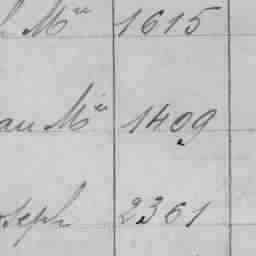 Mce 1615
au Mce 1409
oseph 2361